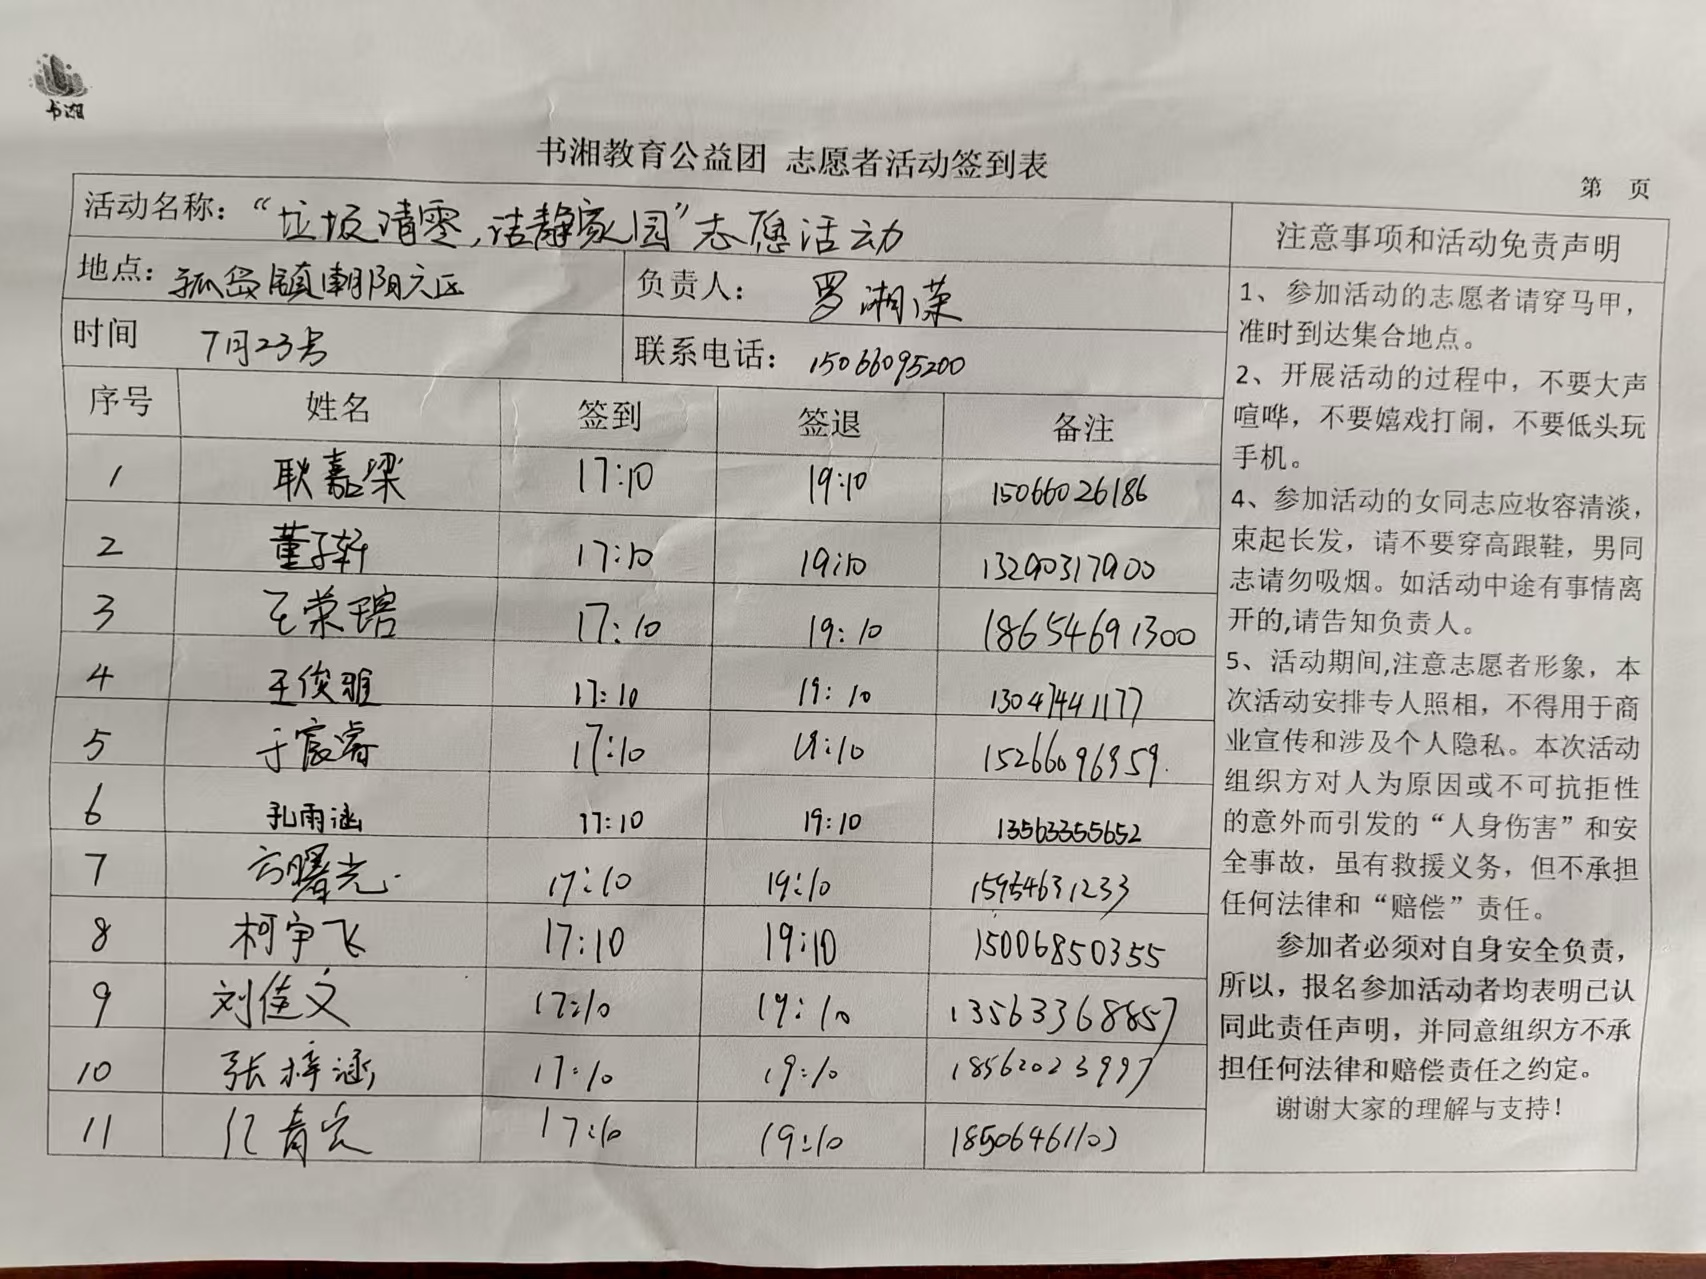 书湘
书湘教育公益团 志愿者活动签到表
第 页
活动名称：“垃圾清零，洁静家园”志愿活动
地点：孤岛镇朝阳六区
负责人： 罗湘荣
时间 7月23号
联系电话：15066095200
序号 姓名 签到 签退 备注
1 耿嘉梁 17:10 19:10 15066026186
2 董子轩 17:10 19:10 13290317900
3 王荣瑢 17:10 19:10 18654691300
4 王俊雅 17:10 19:10 13047441177
5 于宸睿 17:10 19:10 15266096959
6 孔雨涵 17:10 19:10 13563355652
7 方曙光 17:10 19:10 15954631233
8 柯宇飞 17:10 19:10 15006850355
9 刘佳文 17:10 19:10 13563368857
10 张梓涵 17:10 19:10 18562023997
11 17:10 19:10 18506461102
注意事项和活动免责声明
1、参加活动的志愿者请穿马甲，
准时到达集合地点。
2、开展活动的过程中，不要大声
喧哗，不要嬉戏打闹，不要低头玩
手机。
4、参加活动的女同志应妆容清淡，
束起长发，请不要穿高跟鞋，男同
志请勿吸烟。如活动中途有事情离
开的,请告知负责人。
5、活动期间,注意志愿者形象，本
次活动安排专人照相，不得用于商
业宣传和涉及个人隐私。本次活动
组织方对人为原因或不可抗拒性
的意外而引发的“人身伤害”和安
全事故，虽有救援义务，但不承担
任何法律和“赔偿”责任。
参加者必须对自身安全负责，
所以，报名参加活动者均表明已认
同此责任声明，并同意组织方不承
担任何法律和赔偿责任之约定。
谢谢大家的理解与支持！